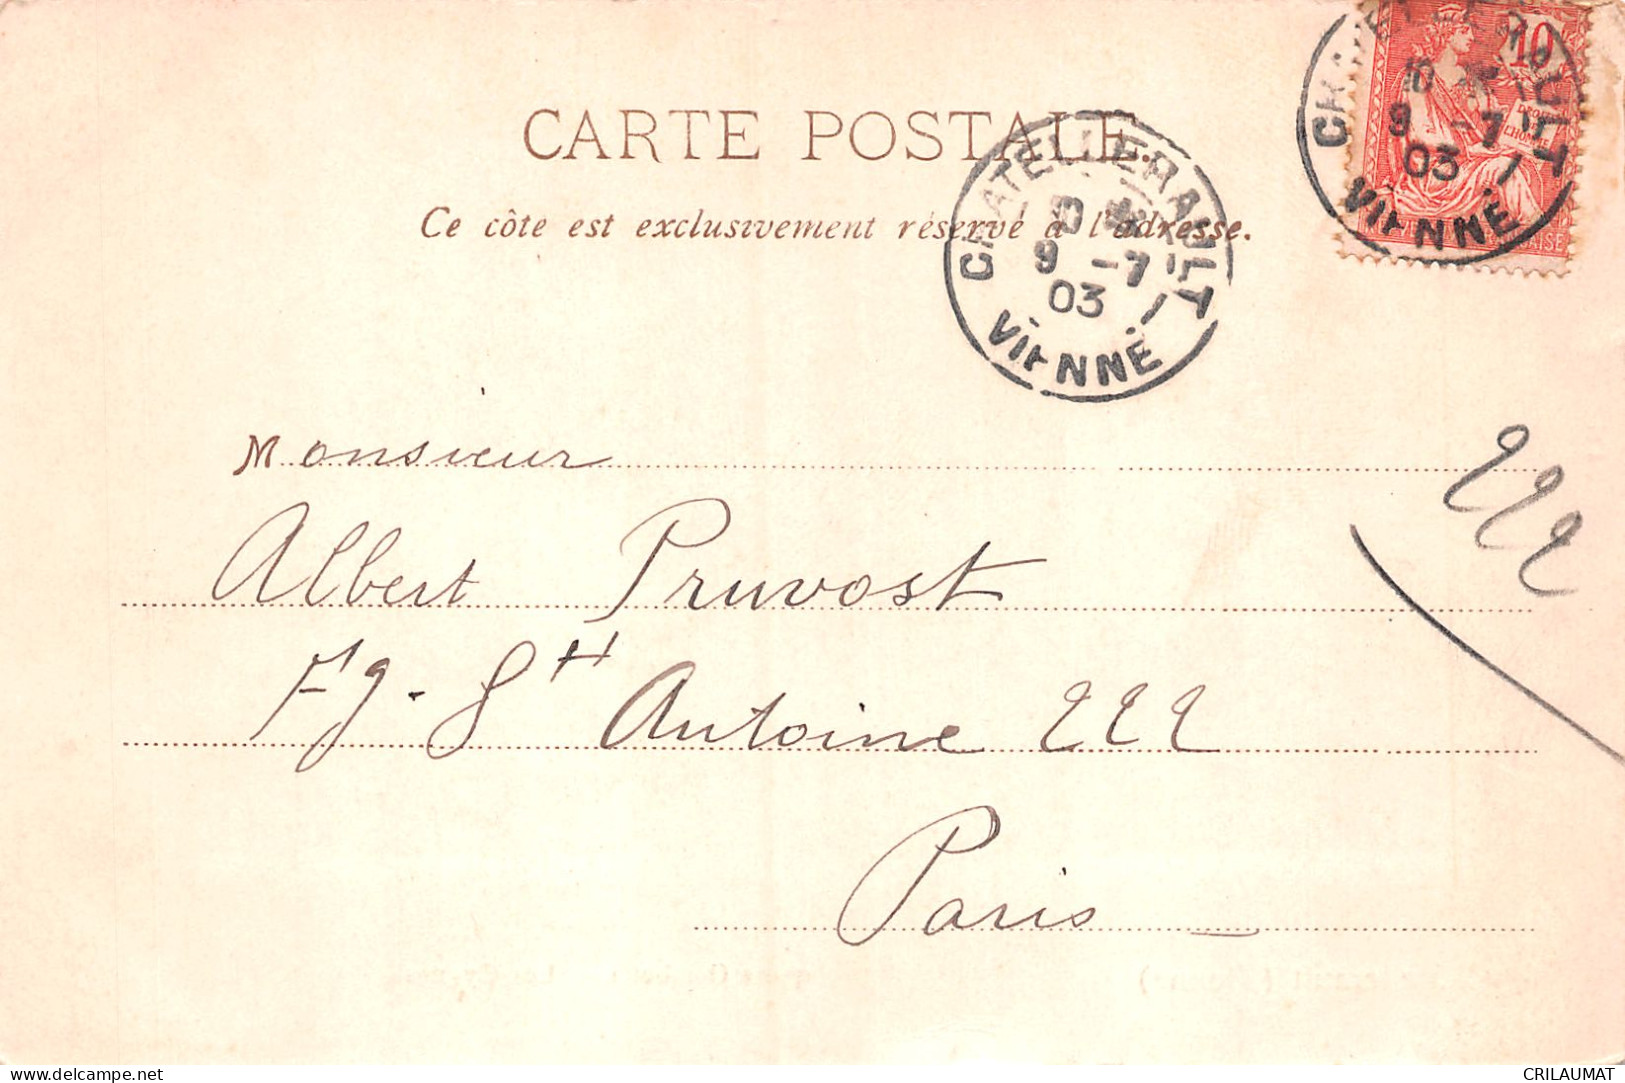 CARTE POSTALE.
Ce côte est exclusivement réservé à l'adresse.
CHATELLERAULT
10
9 -7
03
VIENNE
CHATELLERAULT
10
9 -7
03
VIENNE
10
Monsieur
Albert Pruvost
222
Fg. St Antoine 222
Paris
delcampe.net
CRILAUMAT